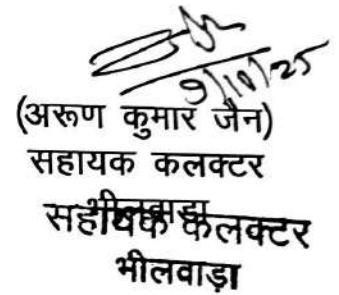 9/10/25
(अरूण कुमार जैन)
सहायक कलक्टर
भीलवाड़ा
सहायक कलक्टर
भीलवाड़ा